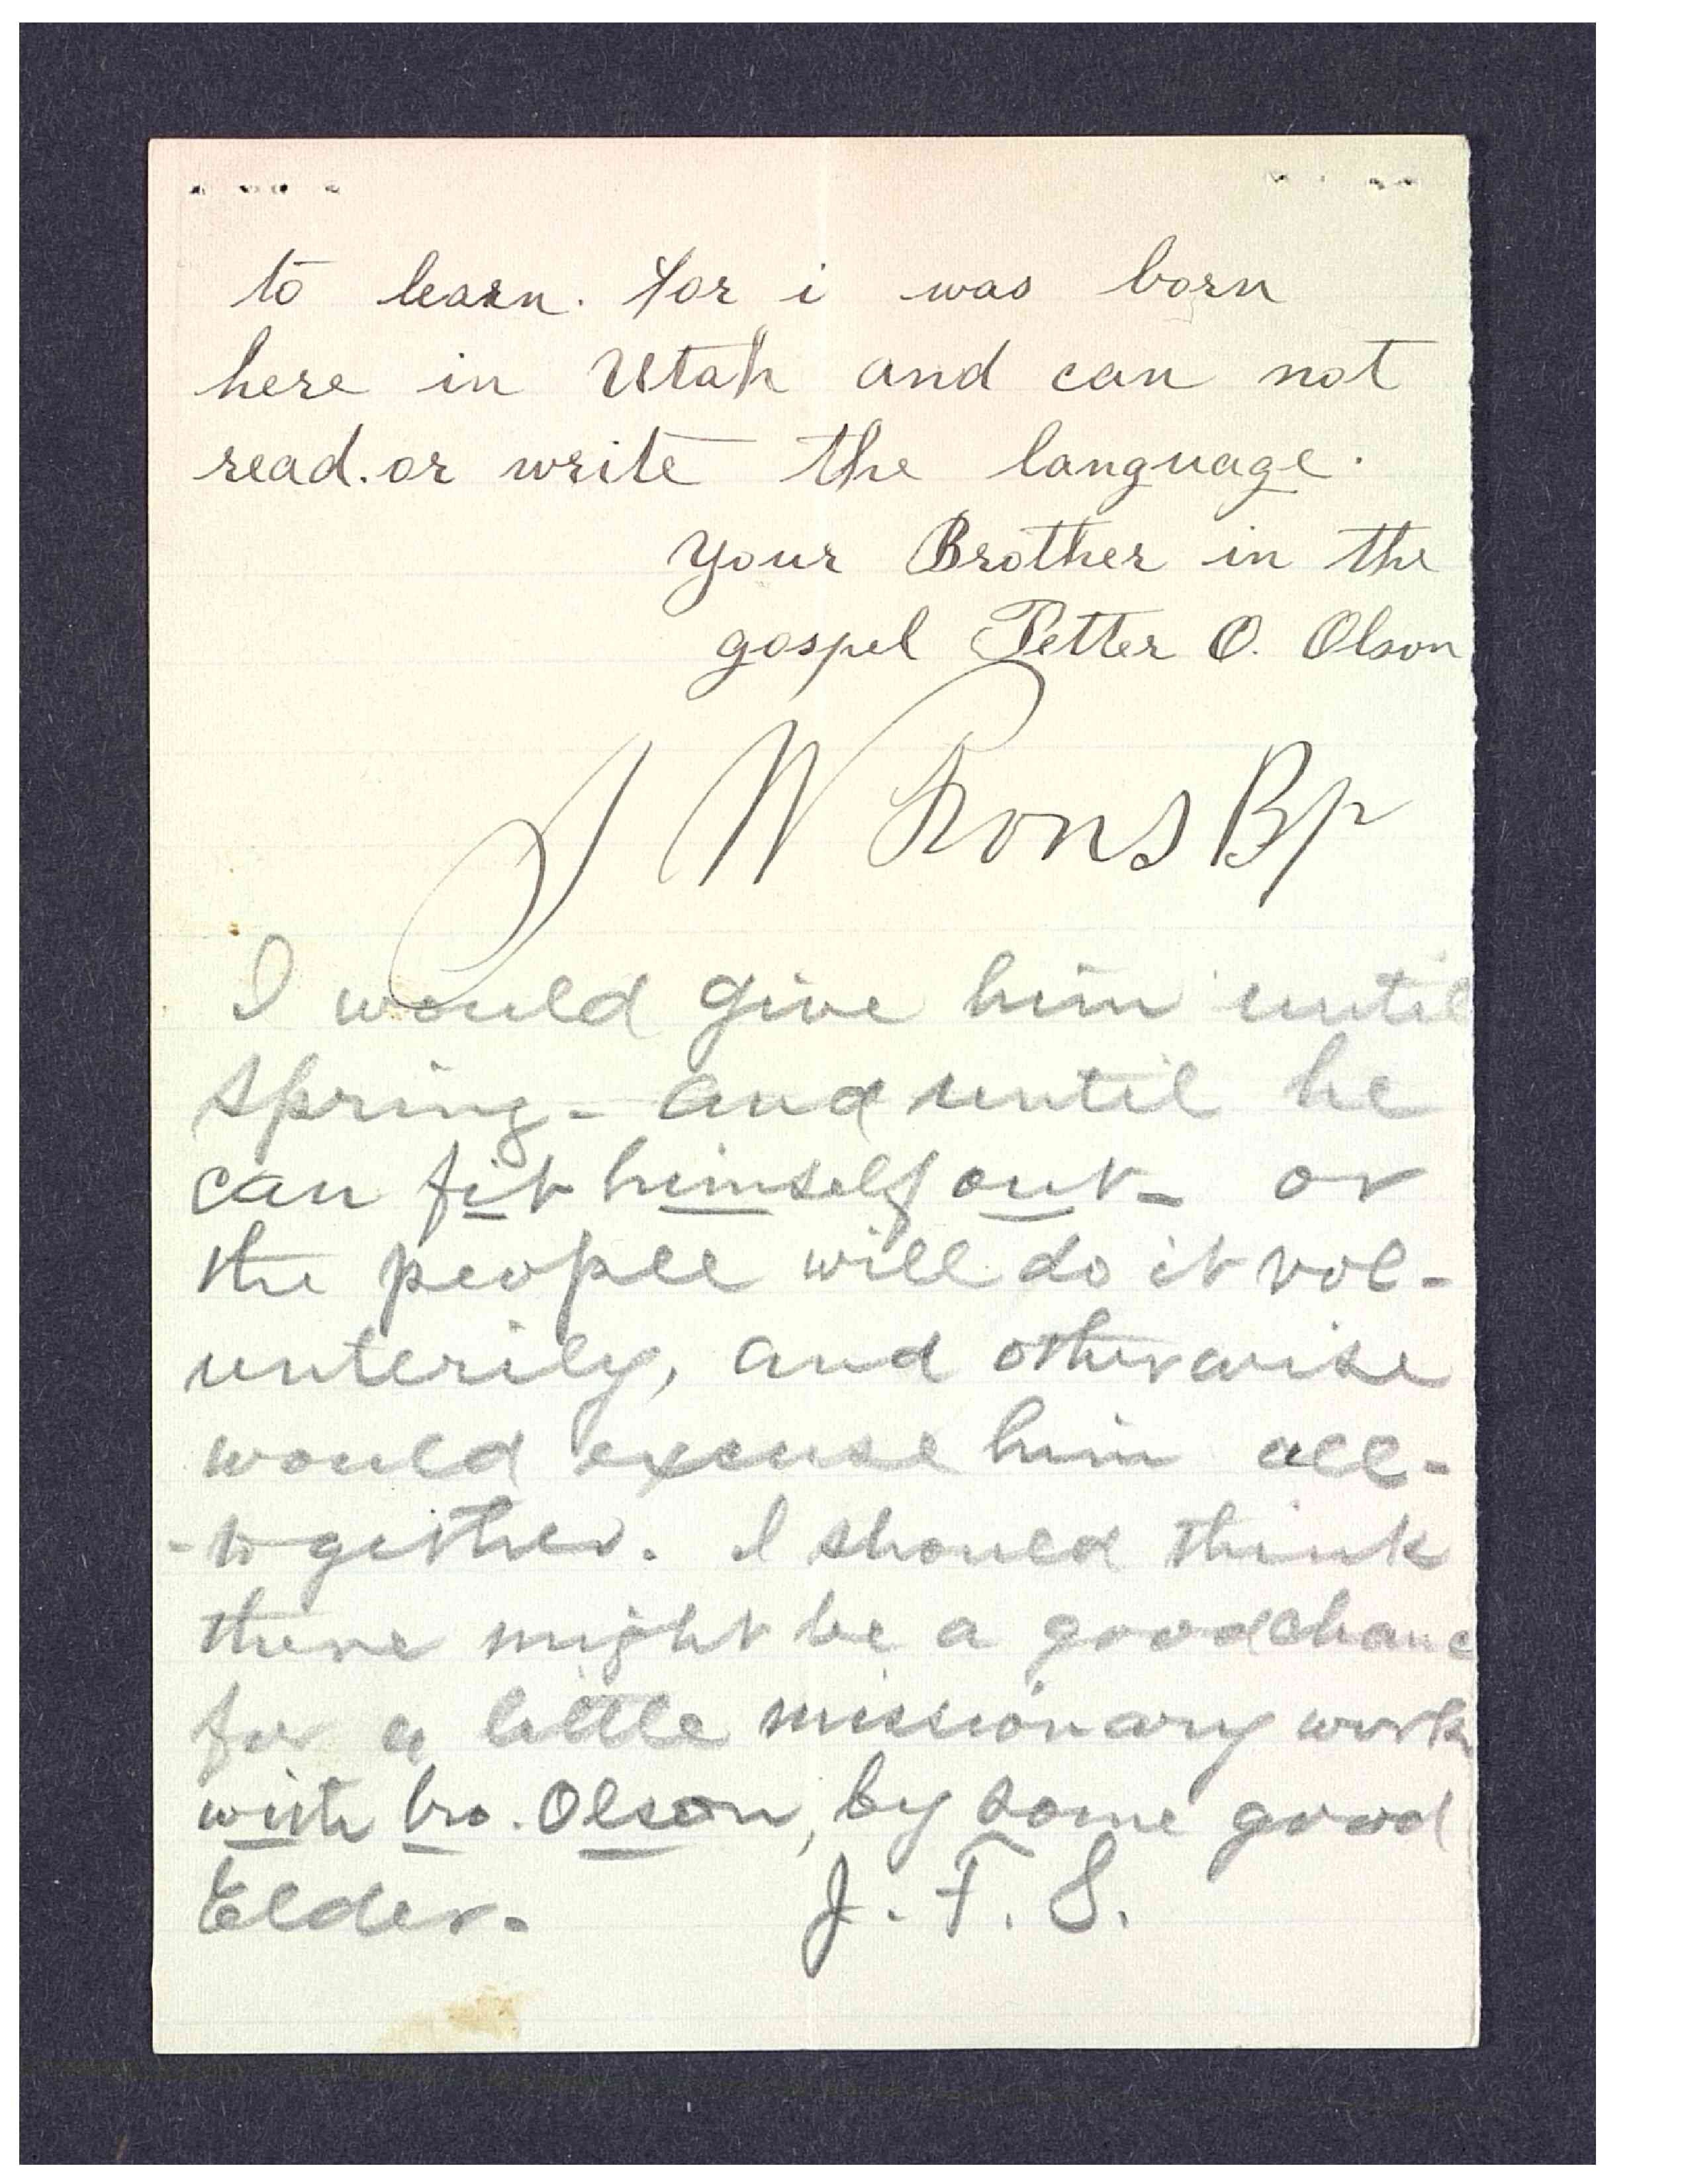 to learn. for i was born
here in Utah and can not
read. or write the language.
Your Brother in the
gospel Petter O. Olson
J W Irons Bp
I would give him until
spring - and until he
can fit himself out - or
the people will do it vol-
unterily, and otherwise
would excuse him all-
-together. I should think
there might be a good chanc
for a little missionary work
with bro. Olson, by some good
Elder. J. F. S.